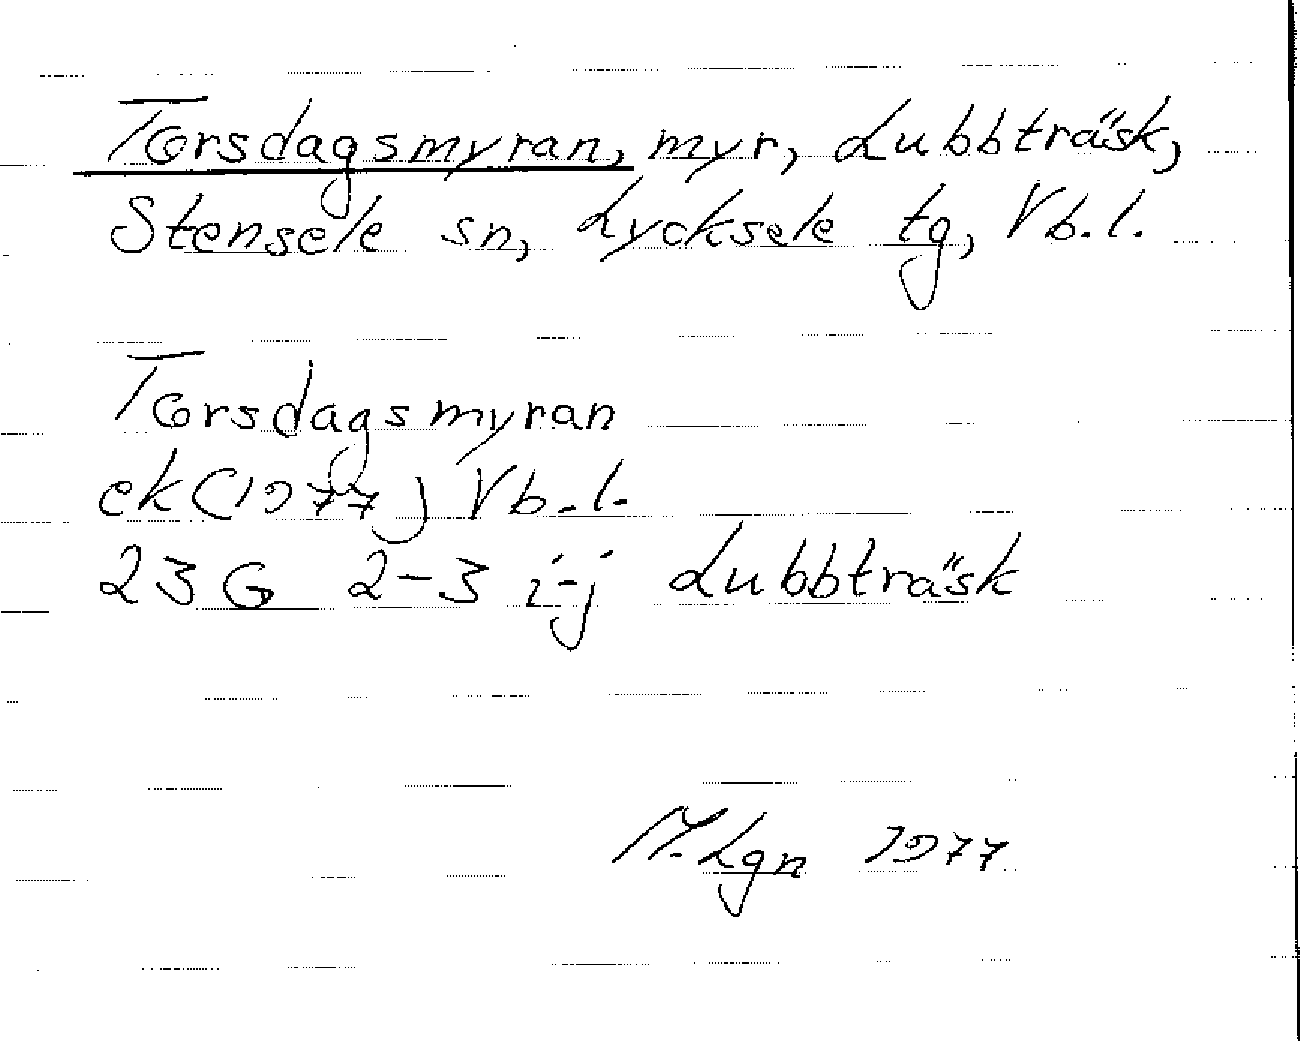 Torsdagsmyran, myr, Lubbträsk,
Stensele sn, Lycksele tg, Vb.l.
Torsdagsmyran
ek (1977) Vb.l.
23 G 2-3 i-j Lubbträsk
M. Lgn 1977